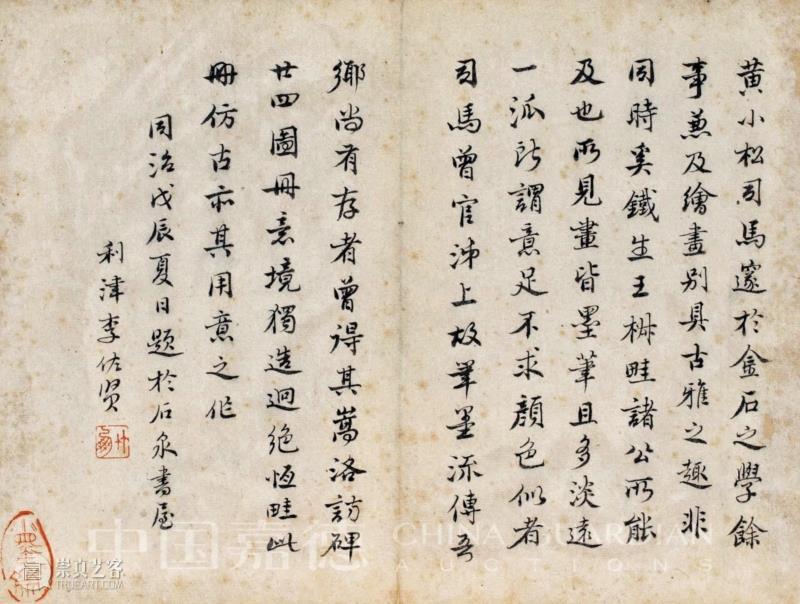 黄小松司馬邃於金石之學餘
事兼及繪畫別具古雅之趣非
同時奚鐵生王椒畦諸公所能
及也所見畫皆墨筆且多淡遠
一派所謂意足不求顏色似者
司馬曾官泲上故筆墨流傳吾
鄉尚有存者曾得其嵩洛訪碑
廿四圖冊意境獨造迥絕恆畦此
冊仿古亦其用意之作
同治戊辰夏日題於石泉書屋
利津李佐賢
竹朋
中国嘉德
CHINA GUARDIAN
AUCTIONS
崇真艺客
TRUEART.COM